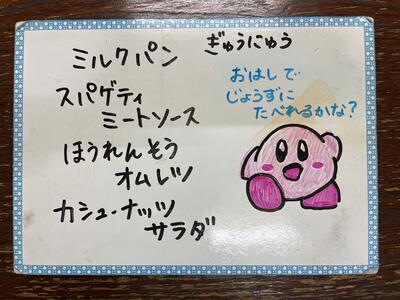 ミルクパン
ぎゅうにゅう
スパゲティ
ミートソース
ほうれんそう
オムレツ
カシューナッツ
サラダ
おはしで
じょうずに
たべれるかな?